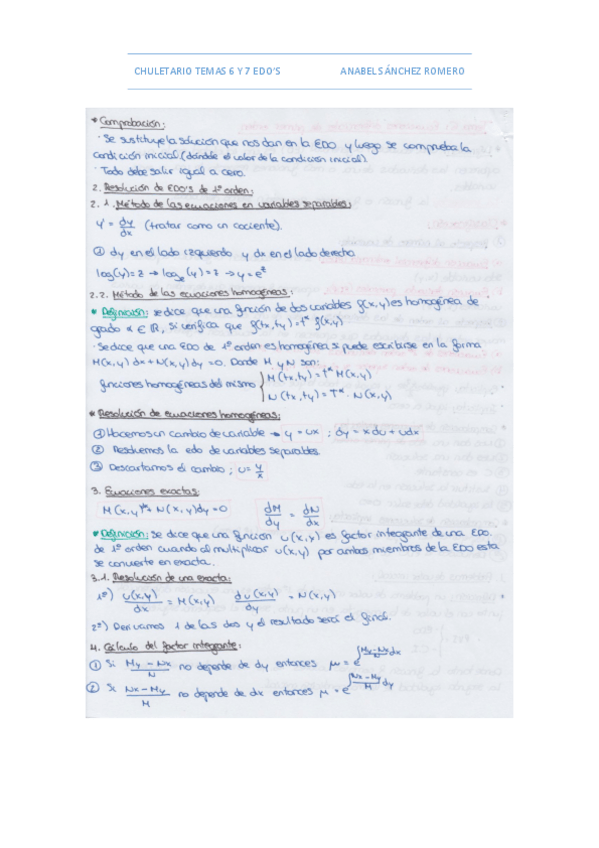 CHULETARIO TEMAS 6 Y 7 EDO'S ANABEL SÁNCHEZ ROMERO
* Comprobación:
· Se sustituye la solución que nos dan en la EDO y luego se comprueba la
condición inicial (dándole el valor de la condición inicial).
· Todo debe salir igual a cero.
2. Resolución de EDO's de 1º orden:
2.1. Método de las ecuaciones en variables separables:
y' = dy/dx (tratar como un cociente).
① dy en el lado izquierdo y dx en el lado derecho
log(y) = z → log_e(y) = z → y = e^z
2.2. Método de las ecuaciones homogéneas:
* Definición: se dice que una función de dos variables f(x,y) es homogénea de
grado α ∈ ℝ, si verifica que f(tx,ty) = t^α f(x,y)
· Se dice que una EDO de 1º orden es homogénea si puede escribirse en la forma
M(x,y) dx + N(x,y) dy = 0. Donde M y N son:
funciones homogéneas del mismo { M(tx,ty) = t^α M(x,y)
N(tx,ty) = T^α · N(x,y)
* Resolución de ecuaciones homogéneas:
① Hacemos un cambio de variable → y = ux ; dy = x du + udx
② Resolvemos la edo de variables separables.
③ Descartamos el cambio ; u = y/x
3. Ecuaciones exactas:
M(x,y) + N(x,y)dy = 0 dM/dy = dN/dx
* Definición: se dice que una función u(x,y) es factor integrante de una EDO.
de 1º orden cuando al multiplicar u(x,y) por ambos miembros de la EDO esta
se convierte en exacta.
3.1. Resolución de una exacta:
1º) u(x,y)/dx = M(x,y) du(x,y)/dy = N(x,y)
2º) Derivamos 1 de las dos y el resultado será el final.
4. Cálculo del factor integrante:
① Si My - Nx/N no depende de dy entonces μ = e^∫My-Nx/N dx
② Si Nx - My/M no depende de dx entonces μ = e^∫Nx-My/M dy